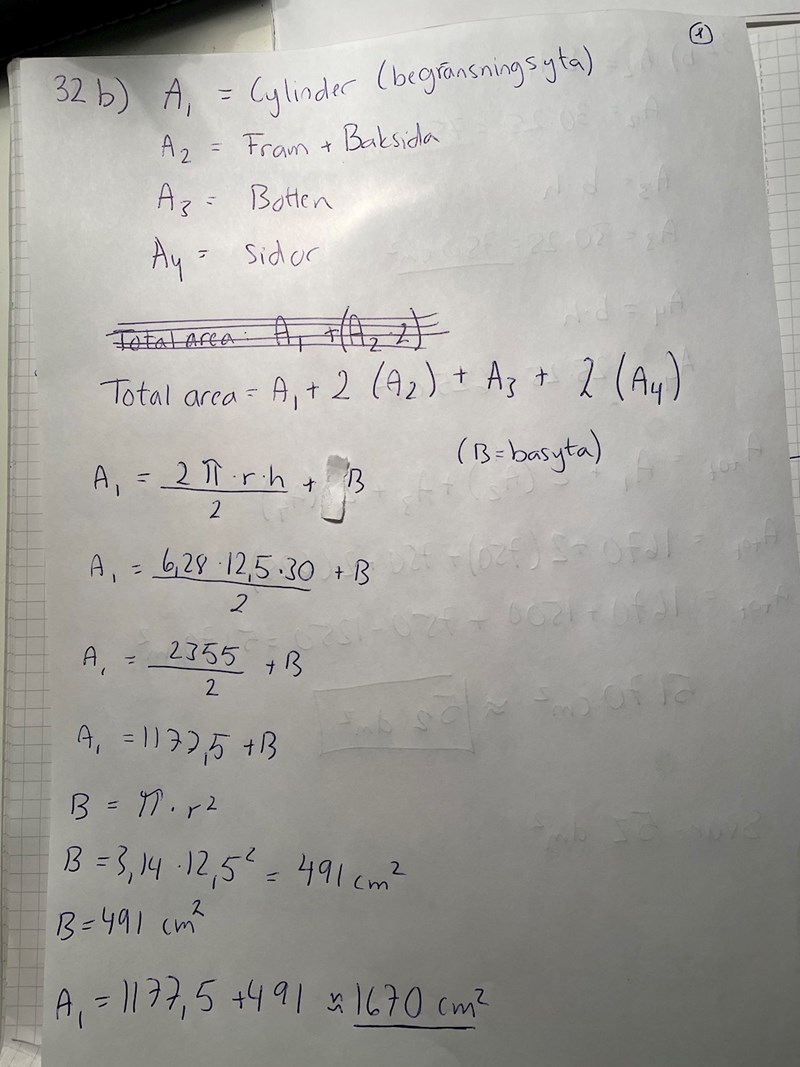 1
32 b) A₁ = Cylinder (begränsningsyta)
A₂ = Fram + Baksida
A₃ = Botten
A₄ = sidor
Total area: A₁ + (A₂·2)
Total area = A₁ + 2 (A₂) + A₃ + 2 (A₄)
A₁ = 2π·r·h/2 + B (B=basyta)
A₁ = 6,28·12,5·30/2 + B
A₁ = 2355/2 + B
A₁ = 1177,5 + B
B = π·r²
B = 3,14·12,5² = 491 cm²
B = 491 cm²
A₁ = 1177,5 + 491 ≈ 1670 cm²